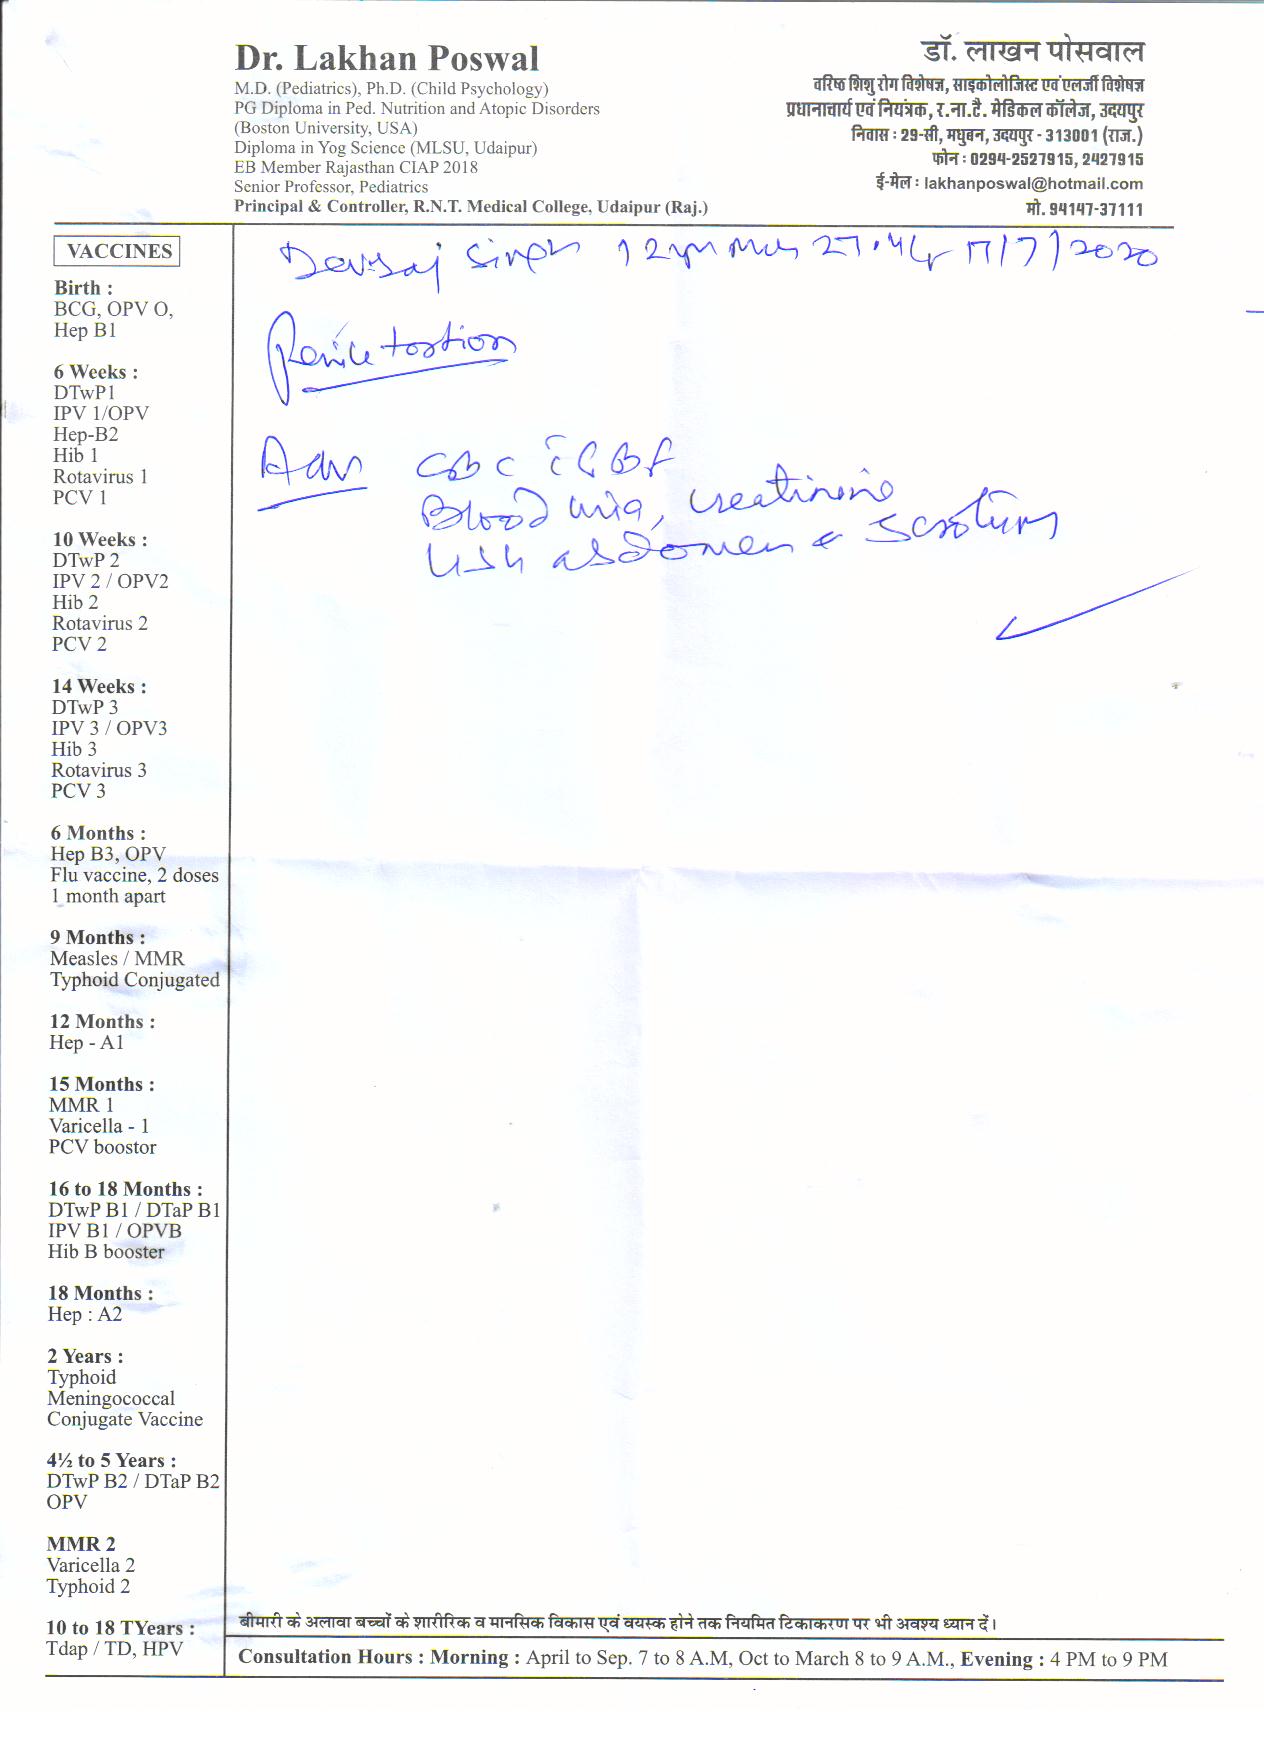 Dr. Lakhan Poswal
M.D. (Pediatrics), Ph.D. (Child Psychology)
PG Diploma in Ped. Nutrition and Atopic Disorders
(Boston University, USA)
Diploma in Yog Science (MLSU, Udaipur)
EB Member Rajasthan CIAP 2018
Senior Professor, Pediatrics
Principal & Controller, R.N.T. Medical College, Udaipur (Raj.)
डॉ. लाखन पोसवाल
वरिष्ठ शिशु रोग विशेषज्ञ, साइकोलोजिस्ट एवं एलर्जी विशेषज्ञ
प्रधानाचार्य एवं नियंत्रक, र.ना.टै. मेडिकल कॉलेज, उदयपुर
निवास : 29-सी, मधुबन, उदयपुर - 313001 (राज.)
फोन : 0294-2527915, 2427915
ई-मेल : lakhanposwal@hotmail.com
मो. 94147-37111
VACCINES
Birth :
BCG, OPV O,
Hep B1
6 Weeks :
DTwP1
IPV 1/OPV
Hep-B2
Hib 1
Rotavirus 1
PCV 1
10 Weeks :
DTwP 2
IPV 2 / OPV2
Hib 2
Rotavirus 2
PCV 2
14 Weeks :
DTwP 3
IPV 3 / OPV3
Hib 3
Rotavirus 3
PCV 3
6 Months :
Hep B3, OPV
Flu vaccine, 2 doses
1 month apart
9 Months :
Measles / MMR
Typhoid Conjugated
12 Months :
Hep - A1
15 Months :
MMR 1
Varicella - 1
PCV boostor
16 to 18 Months :
DTwP B1 / DTaP B1
IPV B1 / OPVB
Hib B booster
18 Months :
Hep : A2
2 Years :
Typhoid
Meningococcal
Conjugate Vaccine
4½ to 5 Years :
DTwP B2 / DTaP B2
OPV
MMR 2
Varicella 2
Typhoid 2
10 to 18 TYears :
Tdap / TD, HPV
Devraj Singh 12 yr 17/7/2020
Penile tortion
Adv CBC
Blood urea, creatinine
USG abdomen & Scrotum
बीमारी के अलावा बच्चों के शारीरिक व मानसिक विकास एवं वयस्क होने तक नियमित टिकाकरण पर भी अवश्य ध्यान दें।
Consultation Hours : Morning : April to Sep. 7 to 8 A.M, Oct to March 8 to 9 A.M., Evening : 4 PM to 9 PM